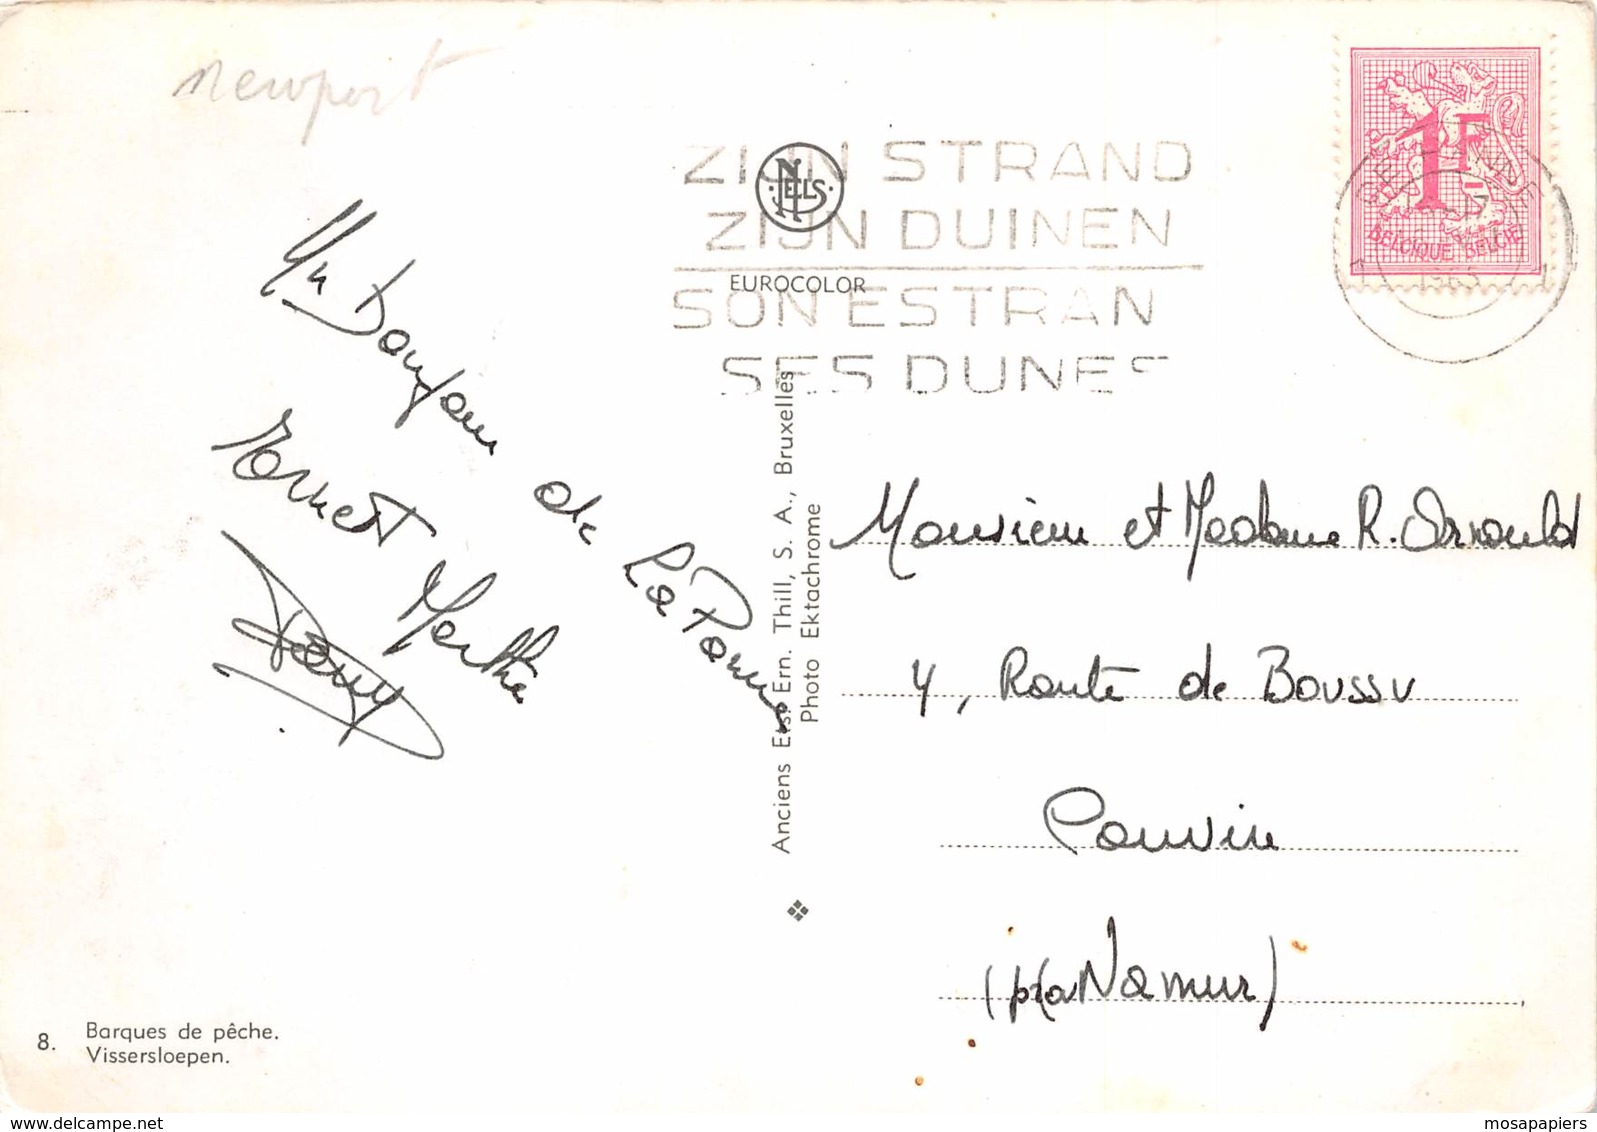 newport
ZIJN STRAND
ZIJN DUINEN
SON ESTRAN
SES DUNES
NELS
EUROCOLOR
1F
BELGIQUE BELGIË
DE PANNE
17
1965
Un Bonjour de La Panne
Ernest Marthe
Anciens Etsts Ern. Thill, S. A., Bruxelles
Photo Ektachrome
Monsieur et Madame R. Arnould
4, Route de Boussu
Couvin
(près Namur)
8. Barques de pêche.
Vissersloepen.
mosapapiers